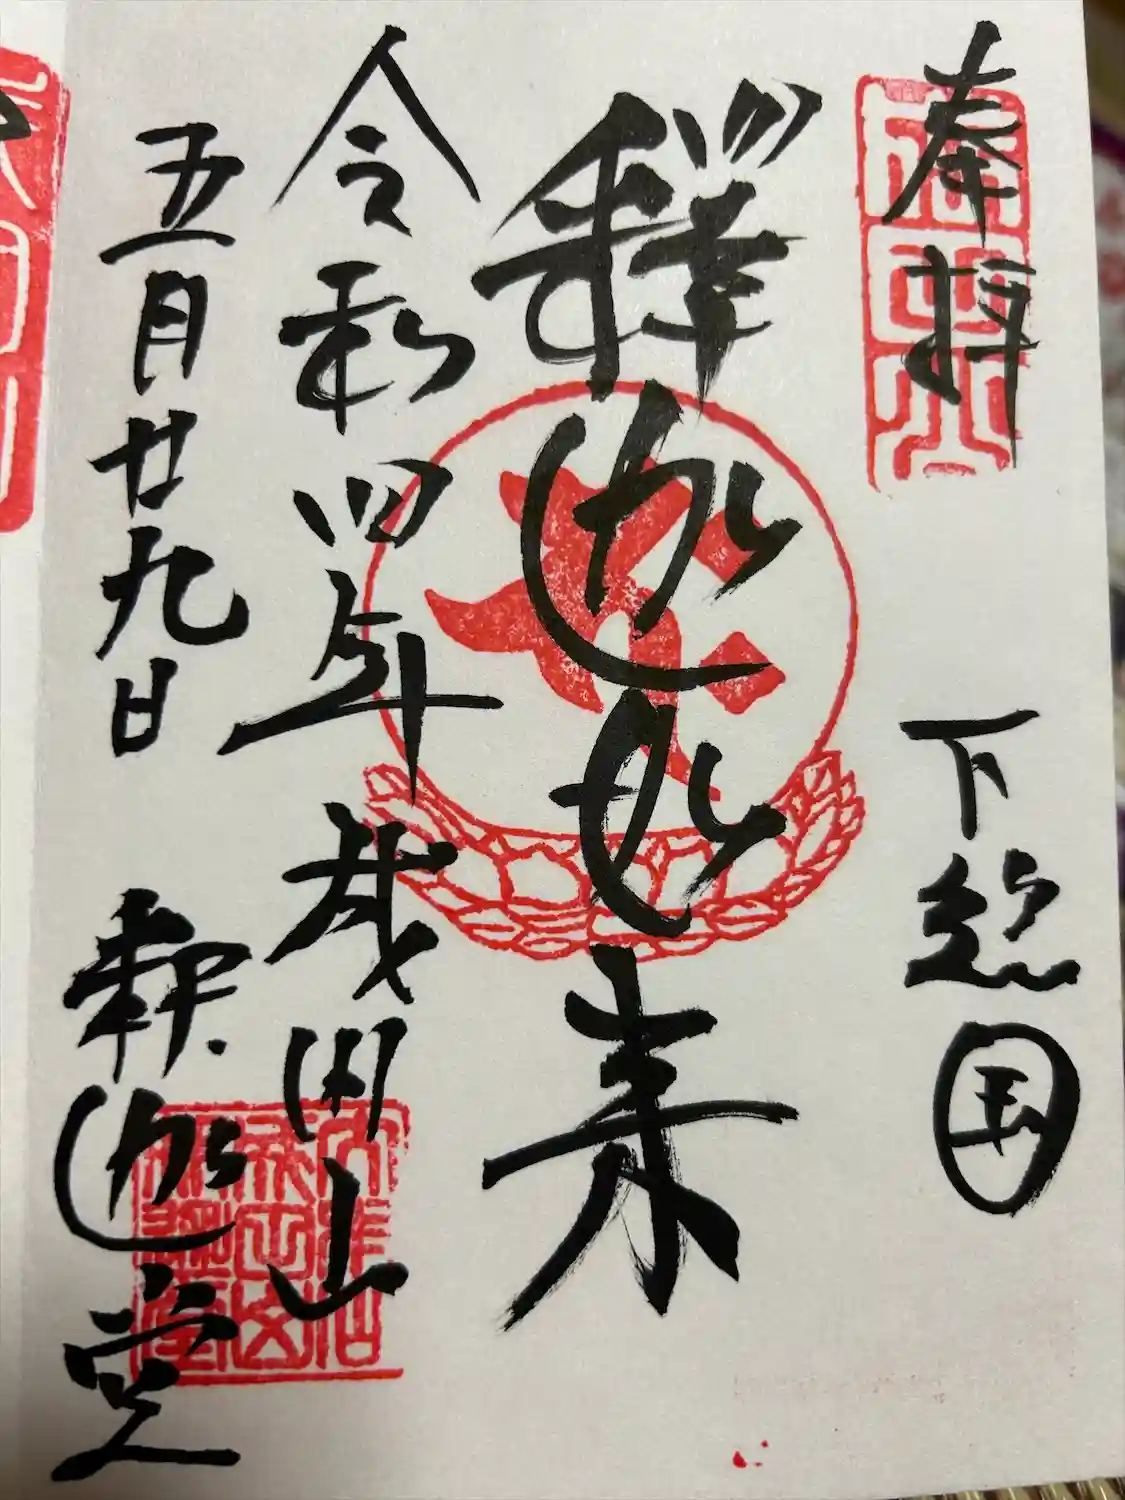 奉拝　下総国
釋迦如来
令和四年　成田山
五月廿九日　釈迦堂